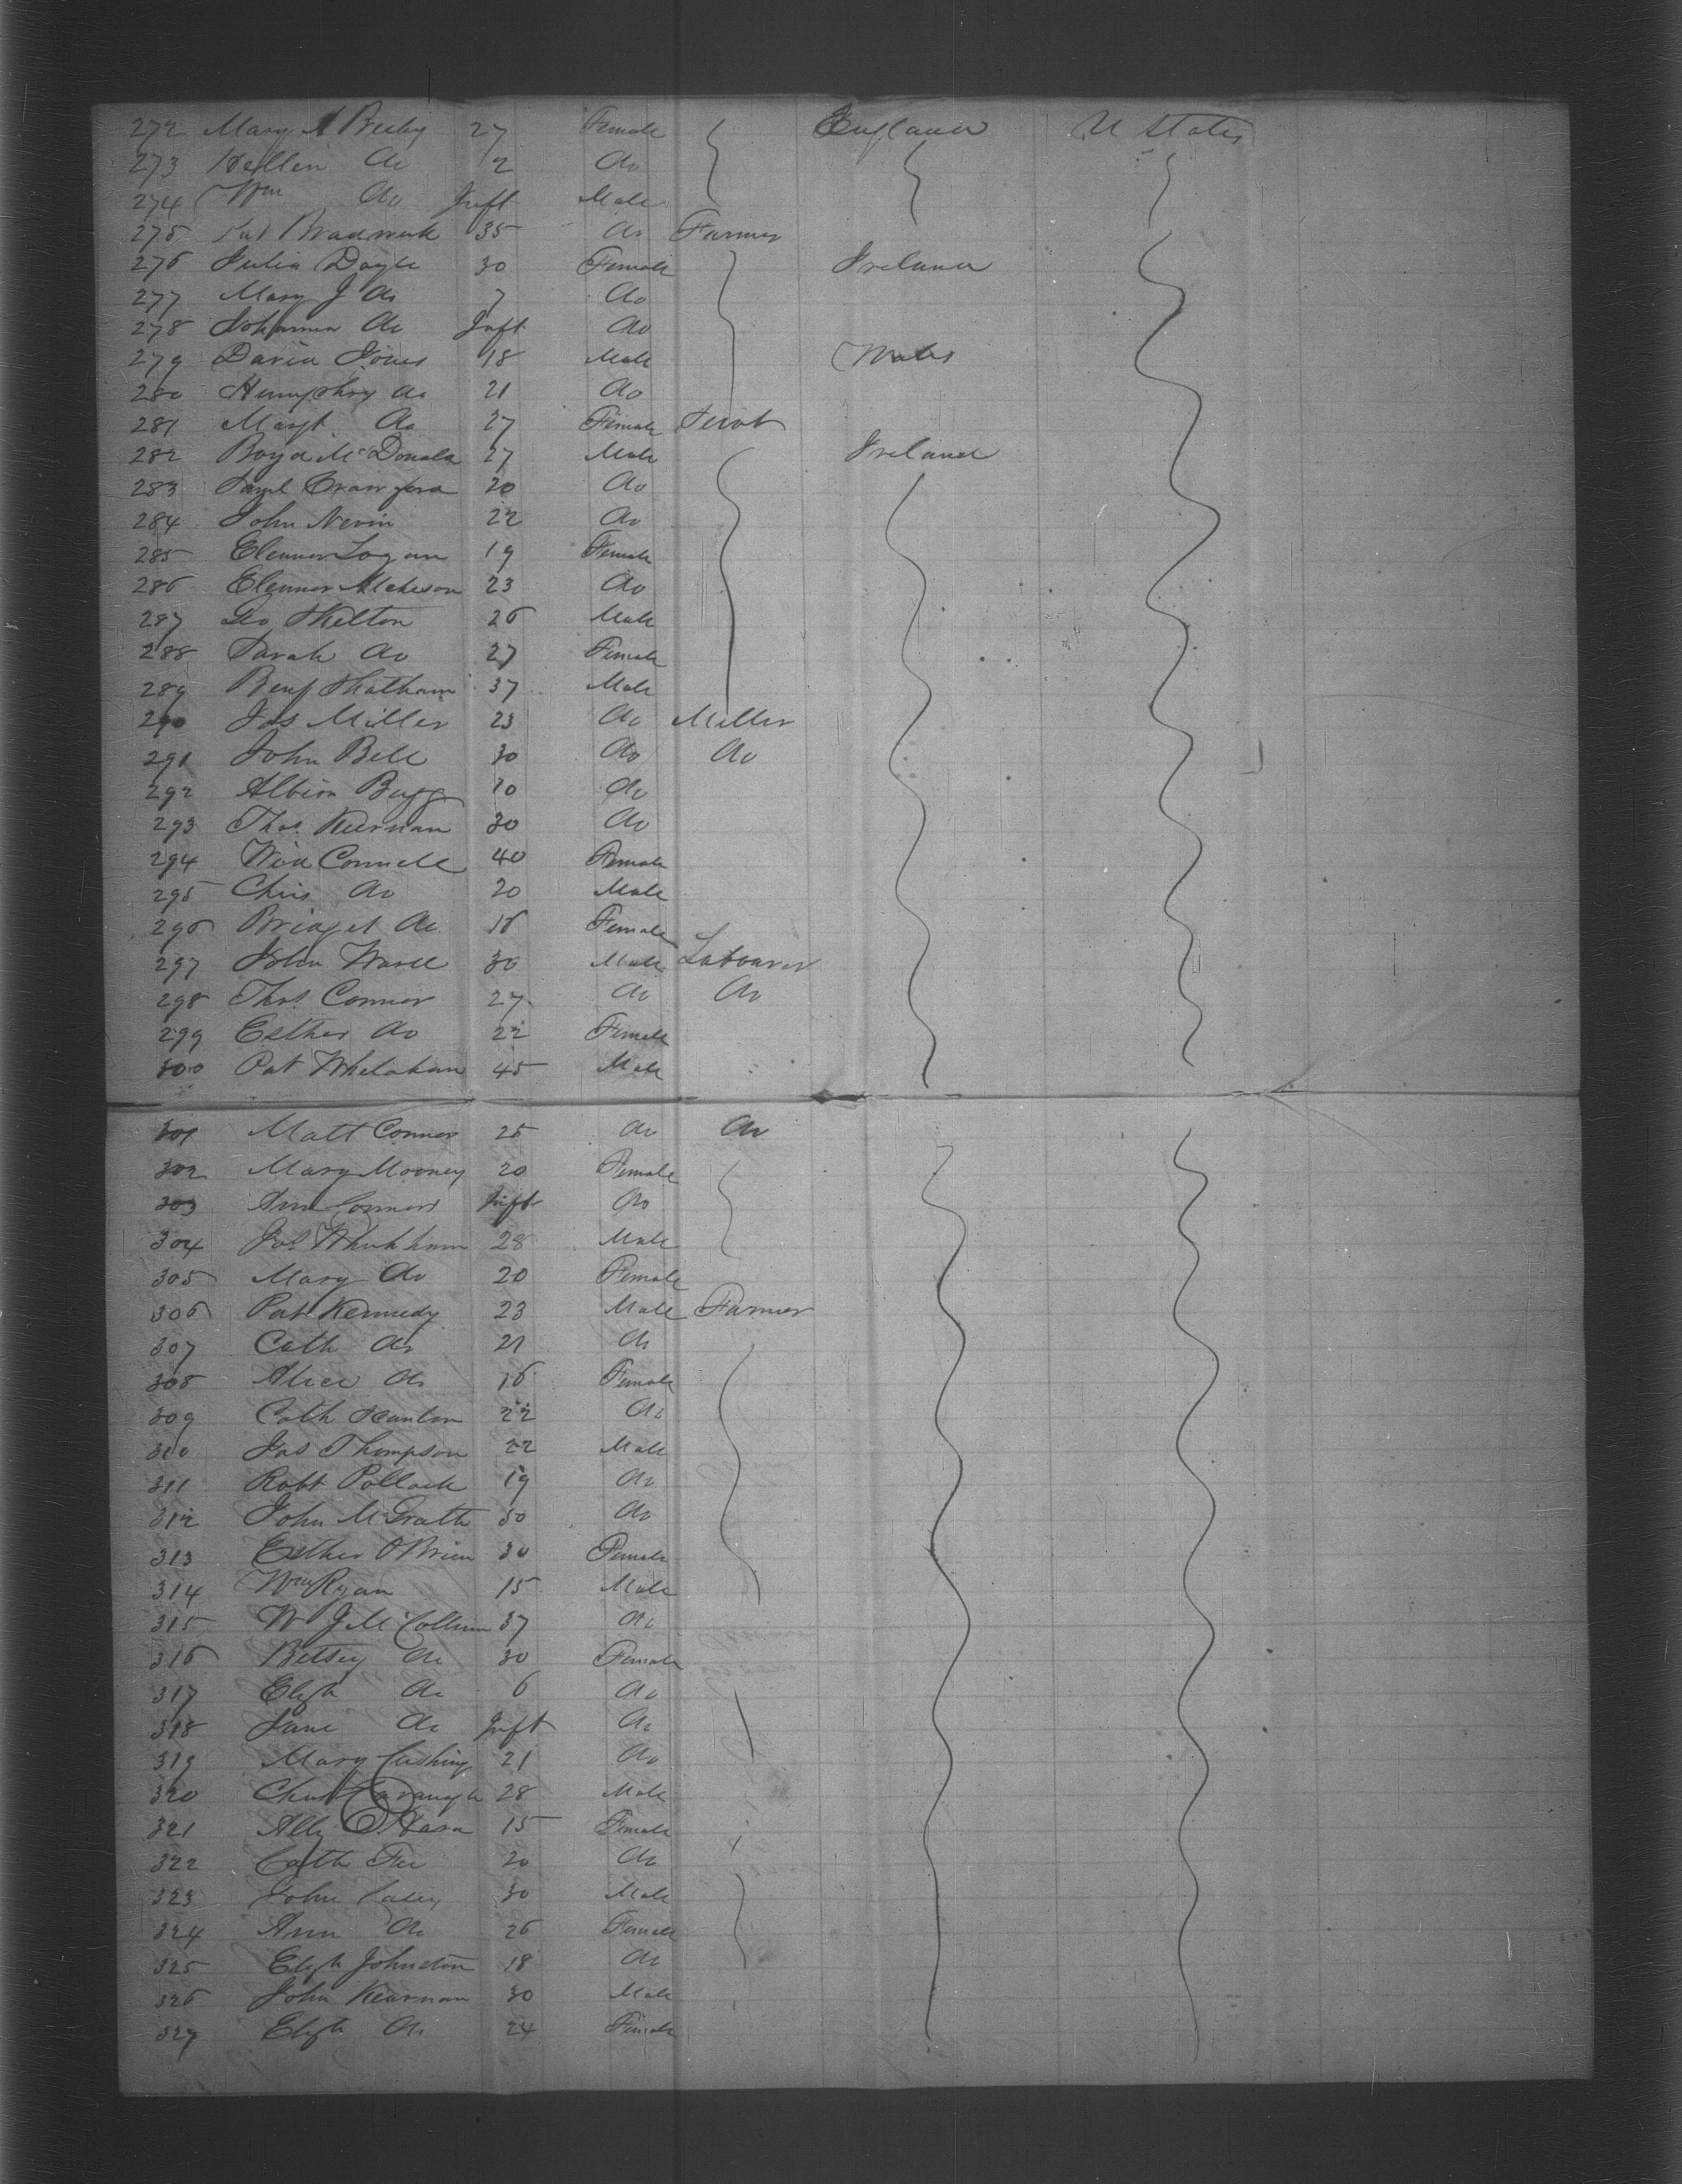 272 Mary A Beeby 27 Female England U States
273 Hellen do 2 do
274 Wm do Inft Male
275 Pat 35 do Farmer
276 Julia Doyle 30 Female Ireland
277 Mary J do 7 do
278 Johanna do Inft do
279 David Jones 18 Male Wales
280 Humphry do 21 do
281 Margt do 27 Female Servt
282 Boyd McDonald 27 Male Ireland
283 Saml Crawford 20 do
284 John Nevin 22 do
285 Elennor Logan 19 Female
286 Elennor Atcheson 23 do
287 Geo Skelton 26 Male
288 Sarah do 27 Female
289 Benj Statham 37 Male
290 Jas Miller 23 do Miller
291 John Bell 30 do do
292 Albion Bugg 10 do
293 Thos Keernan 30 do
294 Wid Connell 40 Female
295 Chris do 20 Male
296 Bridget do 16 Female
297 John Wardl 30 Male Labourer
298 Thos Connor 27 do do
299 Esther do 22 Female
300 Pat Whelahan 45 Male
301 Matt Connor 25 do do
302 Mary Mooney 20 Female
303 Ann Connors Inft do
304 Jos 28 Male
305 Mary do 20 Female
306 Pat Kennedy 23 Male Farmer
307 Cath do 21 do
308 Alice do 16 Female
309 Cath Hanlon 22 do
310 Jas Thompson 22 Male
311 Robt Pollock 19 do
312 John McGrath 50 do
313 Esther O'Brien 30 Female
314 Wm Ryan 15 Male
315 W J McCollum 37 do
316 Betsey do 30 Female
317 Elizh do 6 do
318 Jane do Inft do
319 Mary Cushing 21 do
320 Chrisr Cavanagh 28 Male
321 Ally O'Hara 15 Female
322 Cath Fee 20 do
323 John Casey 30 Male
324 Ann do 26 Female
325 Elizh Johnston 18 do
326 John Kearnan 30 Male
327 Elizh do 24 Female